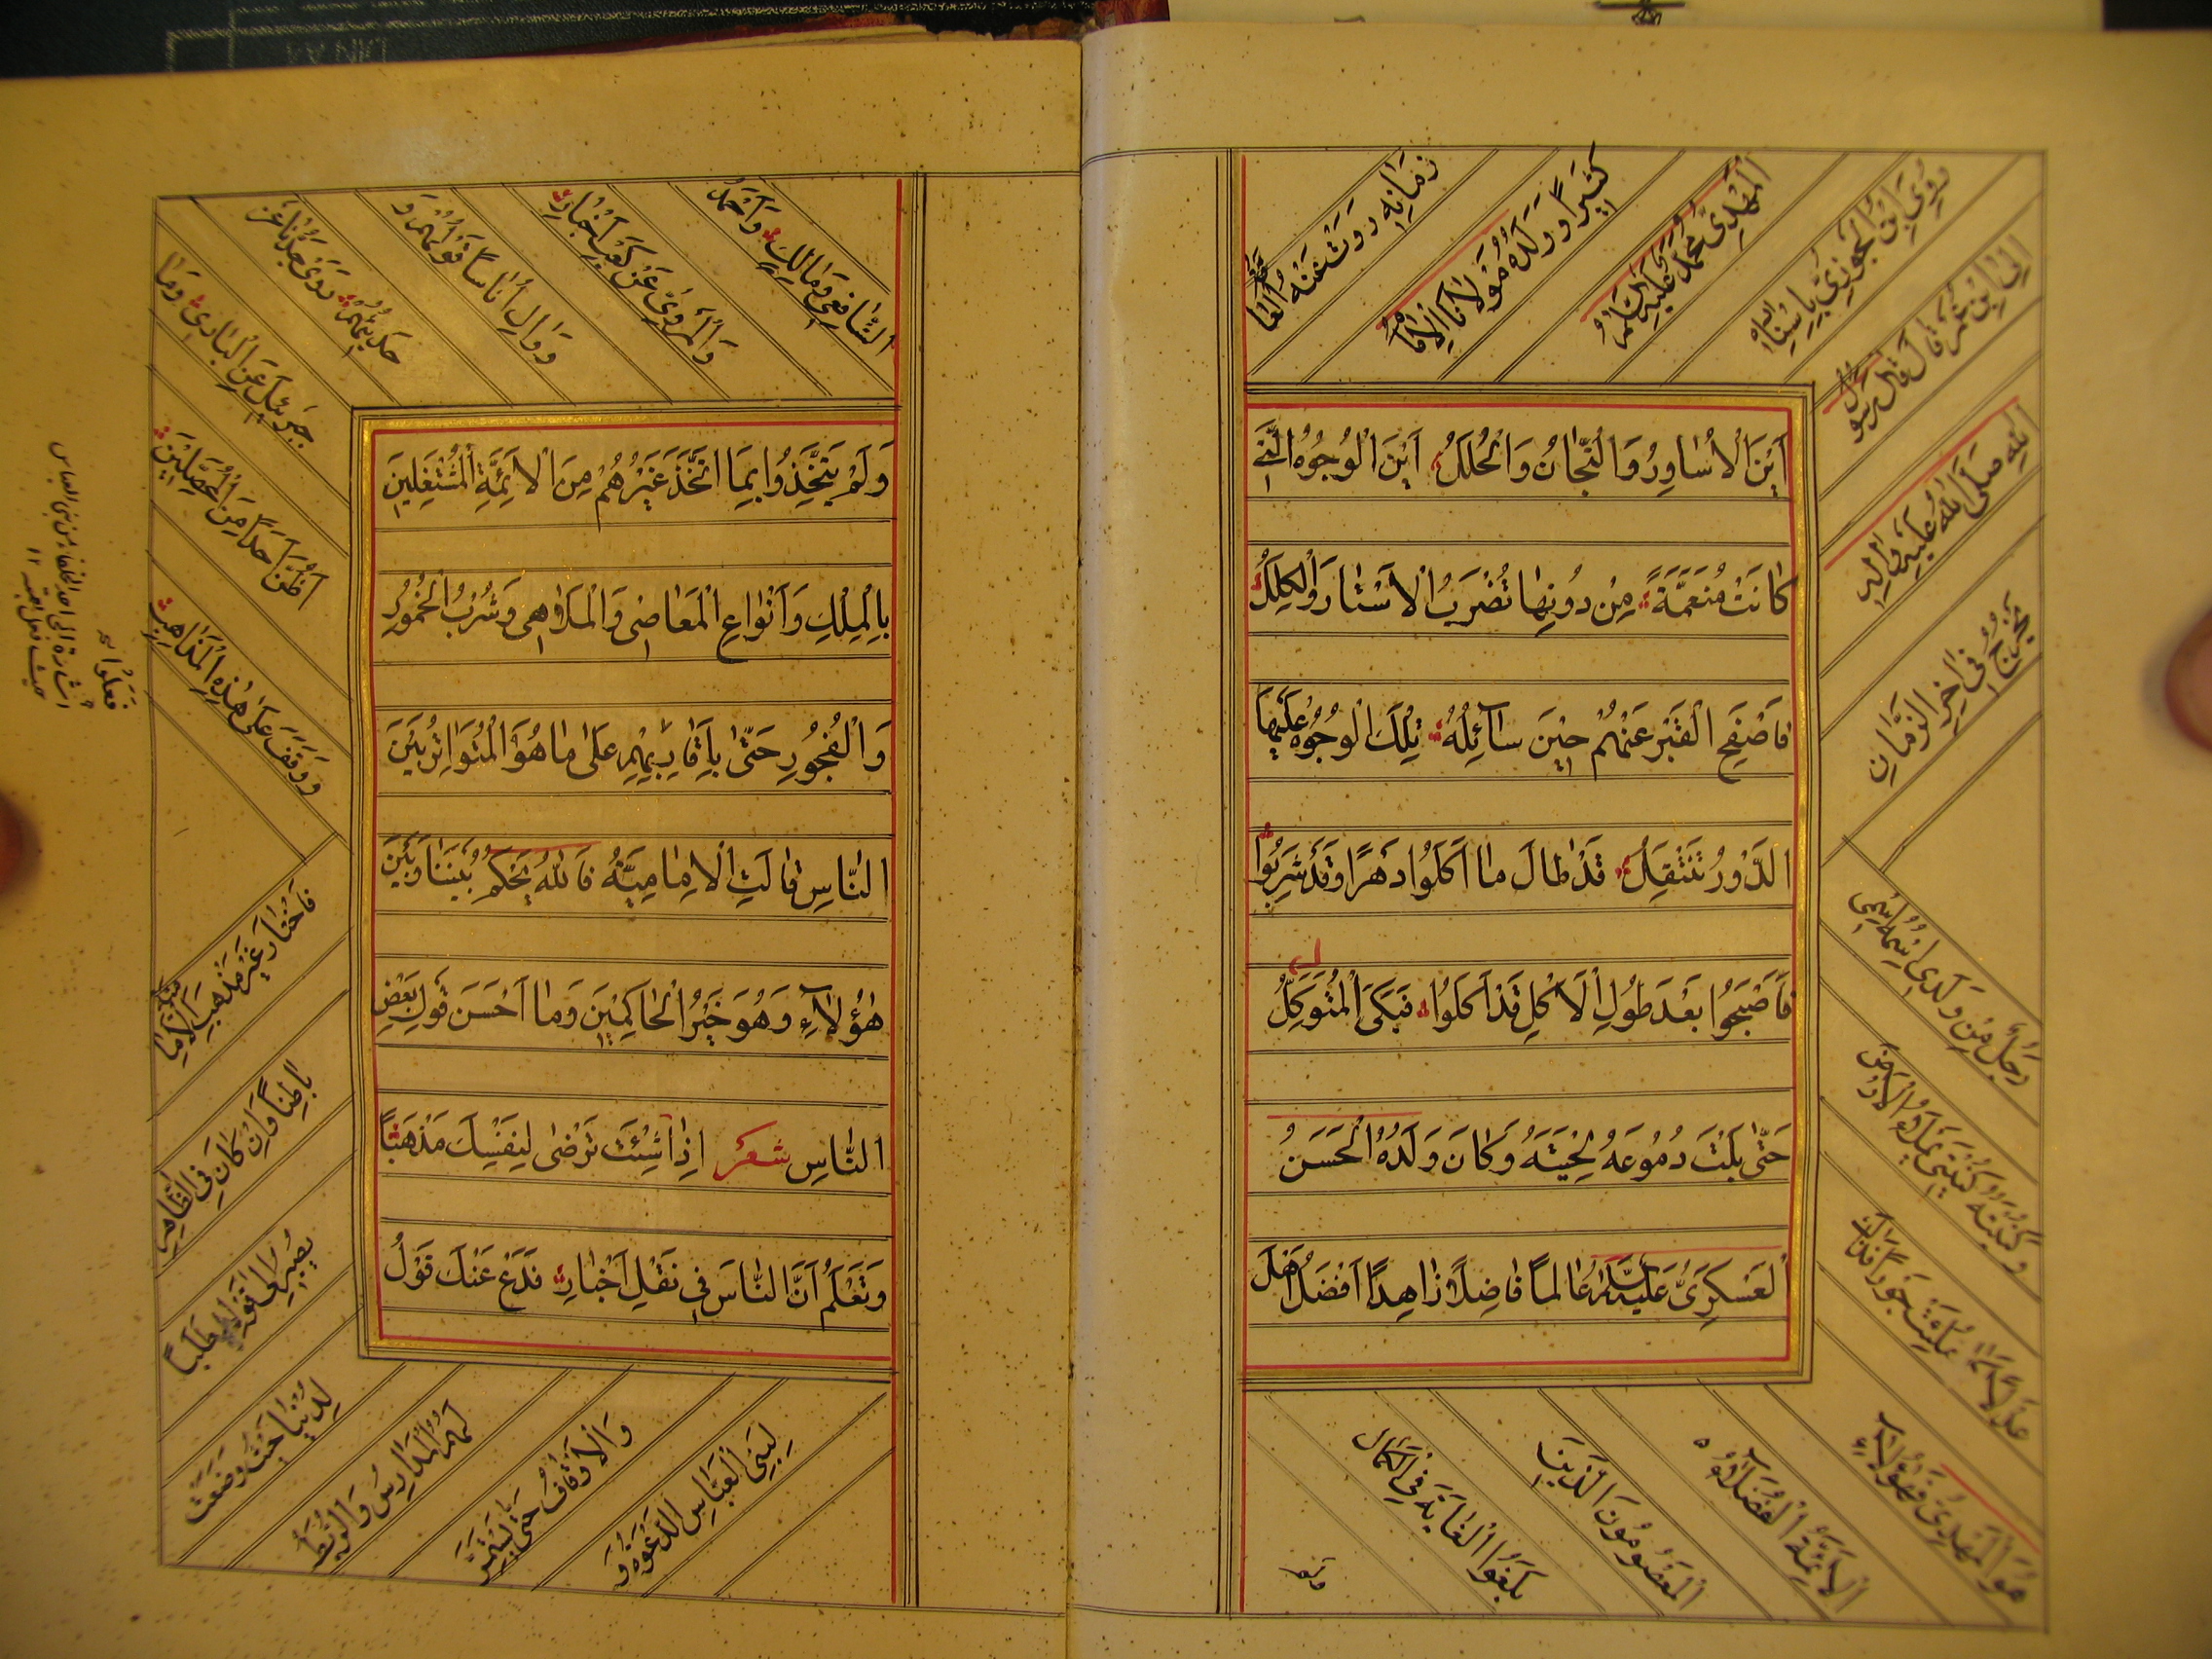 اَيْنَ الْاَسٰاوِرُ وَالتّٖيجٰانُ وَالْحُلَلُ اَيْنَ الْوُجُوْهُ الَّتٖي
كٰانَتْ مُنَعَّمَةً مِنْ دُونِهٰا تُضْرَبُ الْاَسْتٰارُ وَالْكِلَلُ
فَاَفْصَحَ الْقَبْرُ عَنْهُمْ حٖيْنَ سٰآئِلُهُ تِلْكَ الْوُجُوْهُ عَلَيْهٰا
الدُّوْدُ تَنْتَقِلُ قَدْ طٰالَ مٰا اَكَلُوا دَهْرًا وَقَدْ شَرِبُوا
فَاَصْبَحُوا بَعْدَ طُولِ الْاَكْلِ قَدْ اُكِلُوا فَبَكَى الْمُتَوَكِّلُ
حَتّٰى بَلَّتْ دُمُوعُهُ لِحْيَتَهُ وَكٰانَ وَلَدُهُ الْحَسَنُ
الْعَسْكَرِىُّ عَلَيْهِ السَّلٰامُ عٰالِمًا فٰاضِلًا زٰاهِدًا اَفْضَلَ اَهْلِ
زَمٰانِهِ رَوَتْ عَنْهُ الْعٰامَّةُ
كَثٖيرًا وَوَلَدُهُ مَوْلٰانَا الْاِمٰامُ
الْمَهْدِىُّ مُحَمَّدٌ عَلَيْهِ السَّلٰامُ
رَوَى ابْنُ الْجَوْزِىِّ بِاِسْنٰادِهِ
اِلَى ابْنِ عُمَرَ قٰالَ قٰالَ رَسُولُ
اللّٰهِ صَلَّى اللّٰهُ عَلَيْهِ وَاٰلِهِ
يَخْرُجُ فٖي اٰخِرِ الزَّمٰانِ
رَجُلٌ مِنْ وَلَدٖي اِسْمُهُ اِسْمٖي
وَكُنْيَتُهُ كُنْيَتٖي يَمْلَاُ الْاَرْضَ
عَدْلًا كَمٰا مُلِئَتْ جَوْرًا فَذٰلِكَ
هُوَ الْمَهْدِىُّ فَهٰؤُلٰاءِ
الْاَئِمَّةُ الْفُضَلٰاءُ
الْمَعْصُومُونَ الَّذٖينَ
بَلَغُوا الْغٰايَةَ فِي الْكَمٰالِ
وَلَمْ
وَلَمْ يَتَّخِذُوا بِمَا اتَّخَذَ غَيْرُهُمْ مِنَ الْاَئِمَّةِ الْمُشْتَغِلٖينَ
بِالْمُلْكِ وَاَنْوٰاعِ الْمَعٰاصٖى وَالْمَلٰاهٖى وَشُرْبِ الْخُمُورِ
وَالْفُجُورِ حَتّٰى بِاَقٰارِبِهِمْ عَلىٰ مٰا هُوَ الْمُتَوٰاتِرُ بَيْنَ
النّٰاسِ قٰالَتِ الْاِمٰامِيَّةُ فَاللّٰهُ يَحْكُمُ بَيْنَنٰا وَبَيْنَ
هٰؤُلٰآءِ وَهُوَ خَيْرُ الْحٰاكِمٖينَ وَمٰا اَحْسَنَ قَوْلِ بَعْضِ
النّٰاسِ شعر اِذٰا شِئْتَ تَرْضىٰ لِنَفْسِكَ مَذْهَبًا
وَتَعْلَمُ اَنَّ النّٰاسَ فٖي نَقْلِ اَخْبٰارِ فَدَعْ عَنْكَ قَوْلَ
الشّٰافِعٖي وَمٰالِكٍ وَاَحْمَدَ
وَالْمَرْوِىُّ عَنْ كَعْبِ اَحْبٰارِ
وَوٰالِ اُنٰاسًا قَوْلُهُمْ وَ
حَدٖيثُهُمْ رَوٰى جَدُّنٰا عَنْ
جَبْرَئٖلَ عَنِ الْبٰارِىْ وَمٰا
اَظُنُّ اَحَدًا مِنَ الْمُحَصِّلٖينَ
وَوَقَفَ عَلىٰ هٰذِهِ الْمَذٰاهِبِ
فَاخْتٰارَ غَيْرَ مَذْهَبِ الْاِمٰامِيَّةِ
بٰاطِنًا وَاِنْ كٰانَ فِي الظّٰاهِرِ
يَصٖيرُ اِلىٰ غَيْرِهِ طَلَبًا
لِلدُّنْيٰا حَيْثُ وُضِعَتْ
لَهُمُ الْمَدٰارِسُ وَالرُّبُطُ
وَالْاَوْقٰافُ حَتّٰى يَسْتَمِرَّ
لِبَنِي الْعَبّٰاسِ الدَّعْوَةُ وَ
فعلوا
اشارة الى احد الخلفا من بنى العباس
حيث فعل ١٢